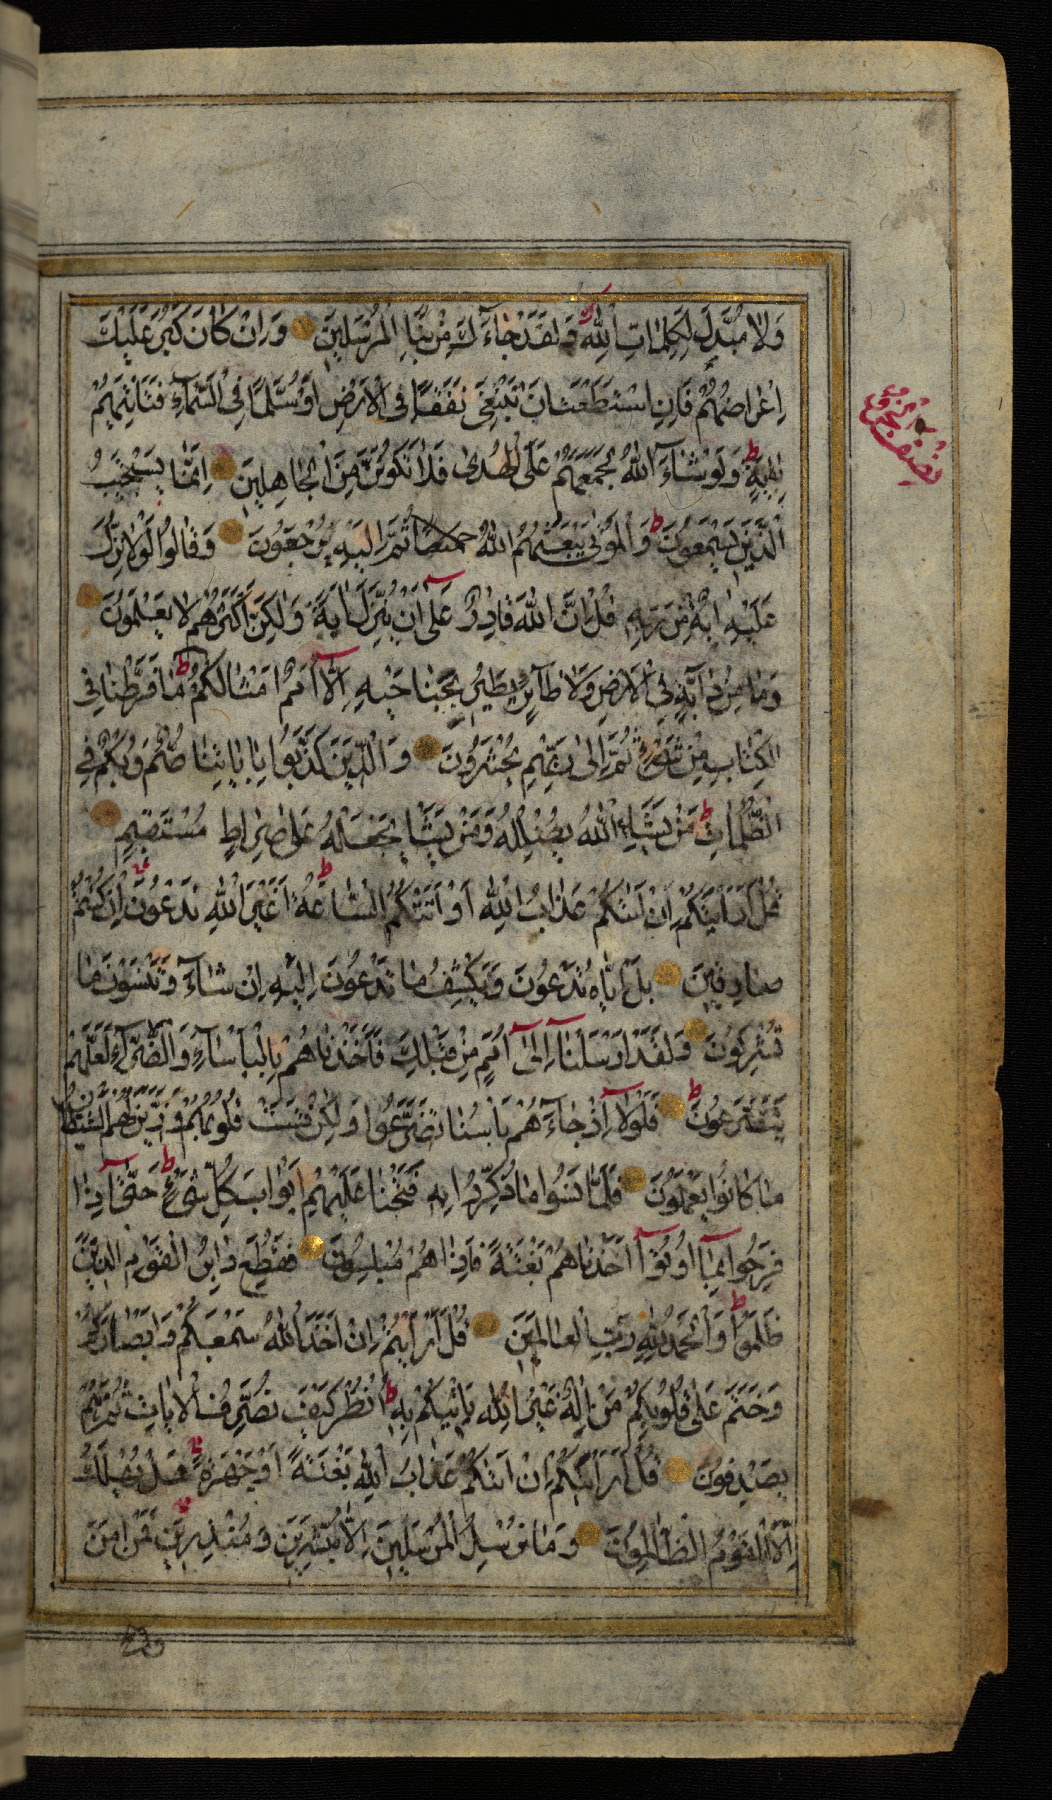 وَلَا مُبَدِّلَ لِكَلِمَاتِ اللَّهِ وَلَقَدْ جَاءَكَ مِنْ نَبَإِ الْمُرْسَلِينَ وَإِنْ كَانَ كَبُرَ عَلَيْكَ
إِعْرَاضُهُمْ فَإِنِ اسْتَطَعْتَ أَنْ تَبْتَغِيَ نَفَقًا فِي الْأَرْضِ أَوْ سُلَّمًا فِي السَّمَاءِ فَتَأْتِيَهُمْ
بِآيَةٍ وَلَوْ شَاءَ اللَّهُ لَجَمَعَهُمْ عَلَى الْهُدَىٰ فَلَا تَكُونَنَّ مِنَ الْجَاهِلِينَ إِنَّمَا يَسْتَجِيبُ
الَّذِينَ يَسْمَعُونَ وَالْمَوْتَىٰ يَبْعَثُهُمُ اللَّهُ ثُمَّ إِلَيْهِ يُرْجَعُونَ وَقَالُوا لَوْلَا نُزِّلَ
عَلَيْهِ آيَةٌ مِنْ رَبِّهِ قُلْ إِنَّ اللَّهَ قَادِرٌ عَلَىٰ أَنْ يُنَزِّلَ آيَةً وَلَٰكِنَّ أَكْثَرَهُمْ لَا يَعْلَمُونَ
وَمَا مِنْ دَابَّةٍ فِي الْأَرْضِ وَلَا طَائِرٍ يَطِيرُ بِجَنَاحَيْهِ إِلَّا أُمَمٌ أَمْثَالُكُمْ مَا فَرَّطْنَا فِي
الْكِتَابِ مِنْ شَيْءٍ ثُمَّ إِلَىٰ رَبِّهِمْ يُحْشَرُونَ وَالَّذِينَ كَذَّبُوا بِآيَاتِنَا صُمٌّ وَبُكْمٌ فِي
الظُّلُمَاتِ مَنْ يَشَاءِ اللَّهُ يُضْلِلْهُ وَمَنْ يَشَأْ يَجْعَلْهُ عَلَىٰ صِرَاطٍ مُسْتَقِيمٍ
قُلْ أَرَأَيْتَكُمْ إِنْ أَتَاكُمْ عَذَابُ اللَّهِ أَوْ أَتَتْكُمُ السَّاعَةُ أَغَيْرَ اللَّهِ تَدْعُونَ إِنْ كُنْتُمْ
صَادِقِينَ بَلْ إِيَّاهُ تَدْعُونَ فَيَكْشِفُ مَا تَدْعُونَ إِلَيْهِ إِنْ شَاءَ وَتَنْسَوْنَ مَا
تُشْرِكُونَ وَلَقَدْ أَرْسَلْنَا إِلَىٰ أُمَمٍ مِنْ قَبْلِكَ فَأَخَذْنَاهُمْ بِالْبَأْسَاءِ وَالضَّرَّاءِ لَعَلَّهُمْ
يَتَضَرَّعُونَ فَلَوْلَا إِذْ جَاءَهُمْ بَأْسُنَا تَضَرَّعُوا وَلَٰكِنْ قَسَتْ قُلُوبُهُمْ وَزَيَّنَ لَهُمُ الشَّيْطَانُ
مَا كَانُوا يَعْمَلُونَ فَلَمَّا نَسُوا مَا ذُكِّرُوا بِهِ فَتَحْنَا عَلَيْهِمْ أَبْوَابَ كُلِّ شَيْءٍ حَتَّىٰ إِذَا
فَرِحُوا بِمَا أُوتُوا أَخَذْنَاهُمْ بَغْتَةً فَإِذَا هُمْ مُبْلِسُونَ فَقُطِعَ دَابِرُ الْقَوْمِ الَّذِينَ
ظَلَمُوا وَالْحَمْدُ لِلَّهِ رَبِّ الْعَالَمِينَ قُلْ أَرَأَيْتُمْ إِنْ أَخَذَ اللَّهُ سَمْعَكُمْ وَأَبْصَارَكُمْ
وَخَتَمَ عَلَىٰ قُلُوبِكُمْ مَنْ إِلَٰهٌ غَيْرُ اللَّهِ يَأْتِيكُمْ بِهِ انْظُرْ كَيْفَ نُصَرِّفُ الْآيَاتِ ثُمَّ هُمْ
يَصْدِفُونَ قُلْ أَرَأَيْتَكُمْ إِنْ أَتَاكُمْ عَذَابُ اللَّهِ بَغْتَةً أَوْ جَهْرَةً هَلْ يُهْلَكُ
إِلَّا الْقَوْمُ الظَّالِمُونَ وَمَا نُرْسِلُ الْمُرْسَلِينَ إِلَّا مُبَشِّرِينَ وَمُنْذِرِينَ فَمَنْ آمَنَ
نصف الجزء